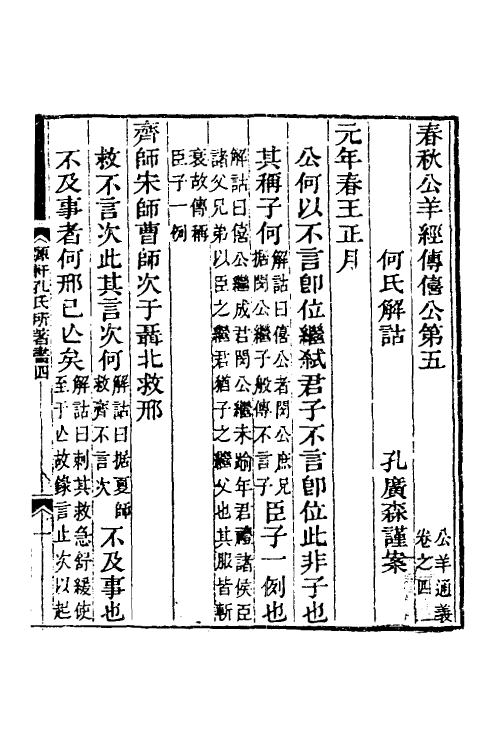 春秋公羊經傳僖公第五
公羊通義
卷之四
何氏解詁
孔廣森謹案
元年春王正月
公何以不言卽位繼弒君子不言卽位此非子也
其稱子何
解詁曰僖公者閔公庶兄
據閔公繼子般傳不言子
臣子一例也
解詁曰僖公繼成君閔公繼未踰年君禮諸侯臣
諸父兄弟以臣之繼君猶子之繼父也其服皆斬
衰故傳稱
臣子一例
齊師宋師曹師次于聶北救邢
救不言次此其言次何
解詁曰据夏師
救齊不言次
不及事也
不及事者何邢已亾矣
解詁曰刺其救急舒緩使
至于亾故錄言止次以起
顨軒孔氏所著書四
一